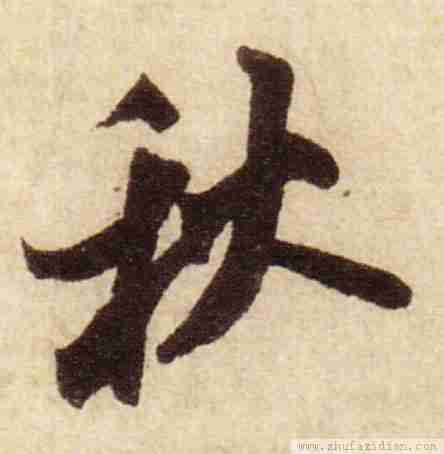 秋
www.zhufazidian.com